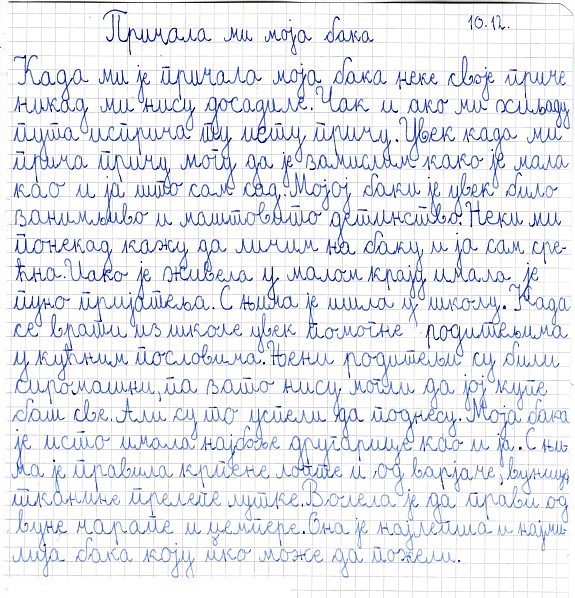 Причала ми моја бака 10.12.
Када ми је причала моја бака неке своје приче
никад ми нису досадиле. Чак и ако ми хиљаду
пута исприча ту исту причу. Увек када ми
прича причу могу да је замислим како је мала
као и ја што сам сад. Мојој баки је увек било
занимљиво и маштовито детинство. Неки ми
понекад кажу да личим на баку и ја сам сре-
ћна. Иако је живела у малом крају имала је
пуно пријатеља. С њима је ишла у школу. Када
се врати из школе увек помогне родитељима
у кућним пословима. Њени родитељи су били
сиромашни, па зато нису могли да јој купе
баш све. Али су то успели да поднесу. Моја бака
је исто имала најбоље другарице као и ја. С њи-
ма је правила крпене лопте и од варјаче, вунице,
тканине прелепе лутке. Волела је да прави од
вуне чарапе и џемпере. Она је најлепша и најми-
лија бака коју ико може да пожели.